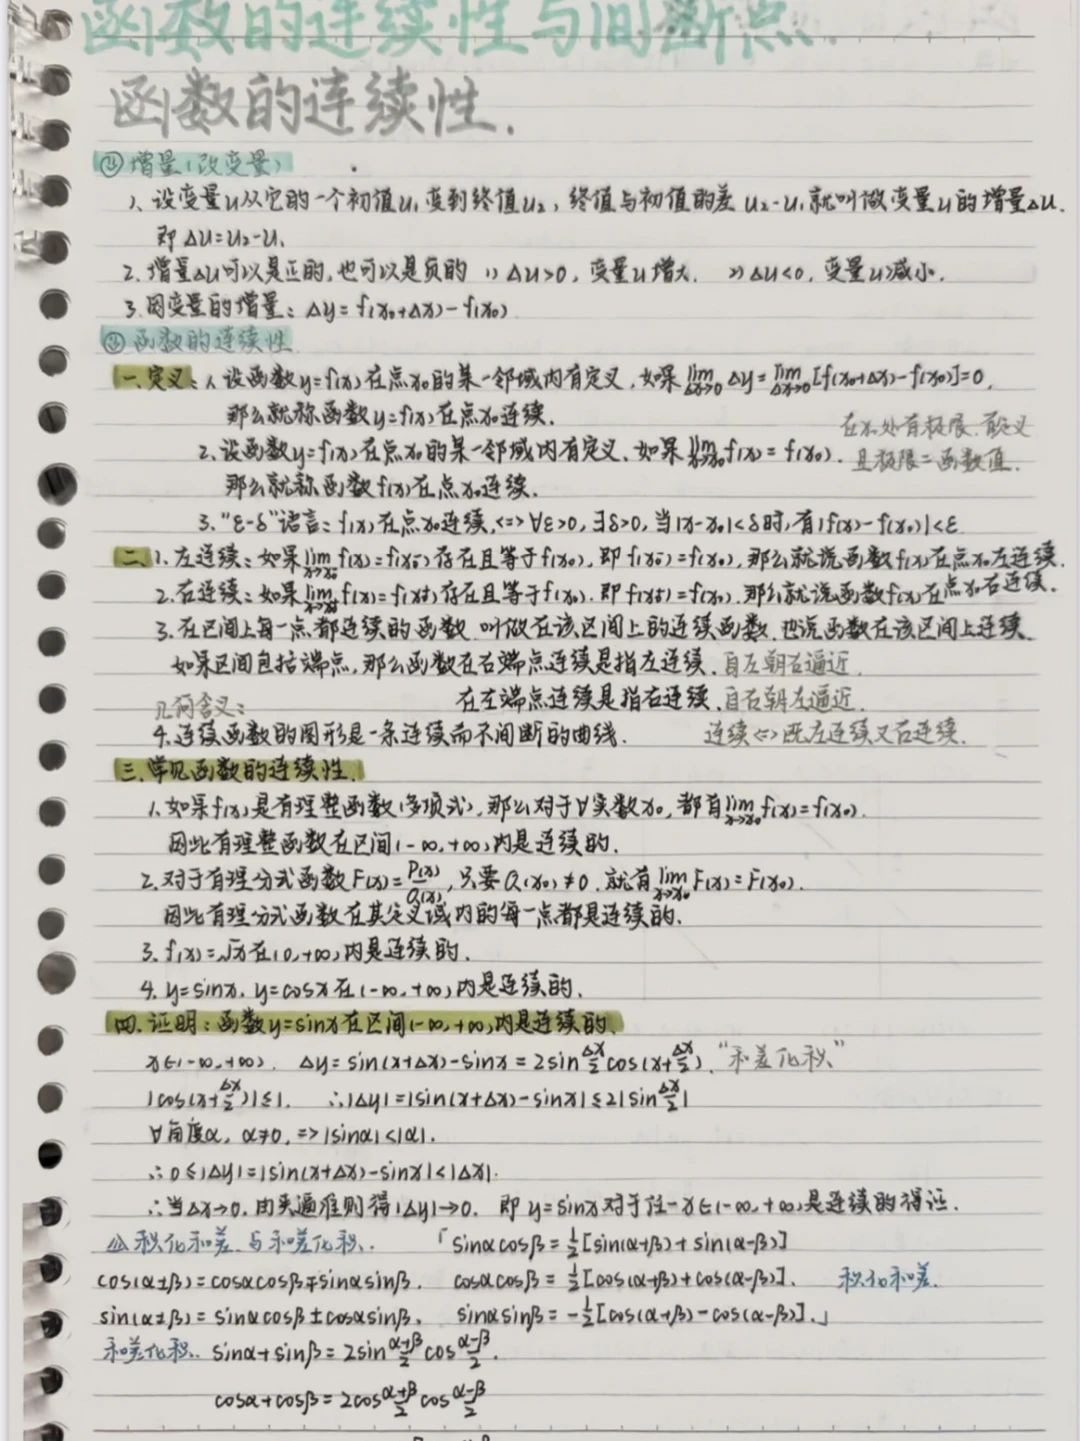 函数的连续性与间断点.
函数的连续性.
⑪ 增量(改变量)
1、设变量u从它的一个初值u₁变到终值u₂,终值与初值的差 u₂-u₁就叫做变量u的增量Δu.
即 Δu=u₂-u₁
2.增量Δu可以是正的,也可以是负的 1) Δu>0,变量u增大. 2) Δu<0,变量u减小.
3.因变量的增量: Δy=f(x₀+Δx)-f(x₀)
函数的连续性
一.定义:1.设函数y=f(x)在点x₀的某一邻域内有定义,如果lim_{Δx→0} Δy=lim_{Δx→0}[f(x₀+Δx)-f(x₀)]=0,
那么就称函数y=f(x)在点x₀连续.
在x₀处有极限.有定义
2.设函数y=f(x)在点x₀的某一邻域内有定义、如果lim_{x→x₀}f(x)=f(x₀). 且极限=函数值.
那么就称函数f(x)在点x₀连续.
3."ε-δ"语言:f(x)在点x₀连续,<=>∀ε>0,∃δ>0,当|x-x₀|<δ时,有|f(x)-f(x₀)|<ε
二.1.左连续:如果lim_{x→x₀⁻}f(x)=f(x₀⁻)存在且等于f(x₀),即f(x₀⁻)=f(x₀),那么就说函数f(x)在点x₀左连续.
2.右连续:如果lim_{x→x₀⁺}f(x)=f(x₀⁺)存在且等于f(x₀).即f(x₀⁺)=f(x₀).那么就说函数f(x)在点x₀右连续.
3.在区间上每一点都连续的函数.叫做在该区间上的连续函数.也说函数在该区间上连续.
如果区间包括端点,那么函数在右端点连续是指左连续.自左朝右逼近.
几何含义: 在左端点连续是指右连续.自右朝左逼近.
4.连续函数的图形是一条连续而不间断的曲线. 连续<=>既左连续又右连续.
三.常见函数的连续性.
1.如果f(x)是有理整函数(多项式),那么对于∀实数x₀,都有lim_{x→x₀}f(x)=f(x₀).
因此有理整函数在区间(-∞,+∞)内是连续的.
2.对于有理分式函数F(x)=P(x)/Q(x),只要Q(x₀)≠0.就有lim_{x→x₀}F(x)=F(x₀).
因此有理分式函数在其定义域内的每一点都是连续的.
3.f(x)=√x在(0,+∞)内是连续的.
4.y=sinx.y=cosx在(-∞,+∞)内是连续的.
四.证明:函数y=sinx在区间(-∞,+∞)内是连续的.
x∈(-∞,+∞). Δy=sin(x+Δx)-sinx=2sin Δx/2 cos(x+Δx/2). "和差化积"
|cos(x+Δx/2)|≤1. ∴|Δy|=|sin(x+Δx)-sinx|≤2|sin Δx/2|
∀角度α,α≠0,=>|sinα|<|α|.
∴0≤|Δy|=|sin(x+Δx)-sinx|<|Δx|.
∴当Δx→0.由夹逼准则得|Δy|→0. 即y=sinx对于任一x∈(-∞,+∞)是连续的得证.
积化和差.与和差化积. 「sinαcosβ=½[sin(α+β)+sin(α-β)]
cos(α±β)=cosαcosβ∓sinαsinβ. cosαcosβ=½[cos(α+β)+cos(α-β)]. 积化和差.
sin(α±β)=sinαcosβ±cosαsinβ. sinαsinβ=-½[cos(α+β)-cos(α-β)].」
和差化积. sinα+sinβ=2sin (α+β)/2 cos (α-β)/2.
cosα+cosβ=2cos (α+β)/2 cos (α-β)/2